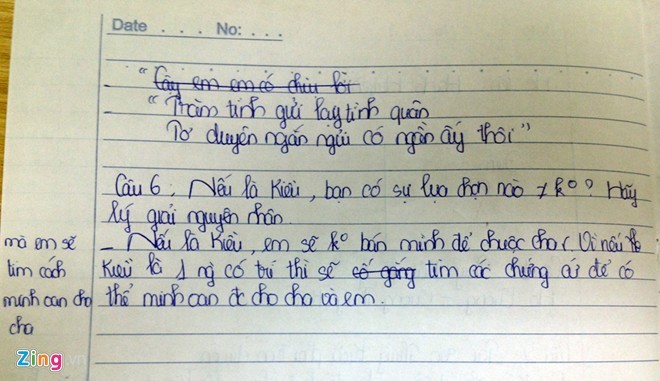 Date . . . No: . . .
"Cậy em em có chịu lời
"Trăm tình gửi lạy tình quân
Tơ duyên ngắn ngủi có ngần ấy thôi"
Câu 6: Nếu là Kiều, bạn có sự lựa chọn nào ≠ k°? Hãy
lý giải nguyên nhân
- Nếu là Kiều, em sẽ k° bán mình để chuộc cha (Vì nếu
mà em sẽ
tìm cách
minh oan cho
cha
Kiều là 1 ng có trí thì sẽ cố gắng tìm các chứng cứ để có
thể minh oan đc cho cha và em.
Zing.vn